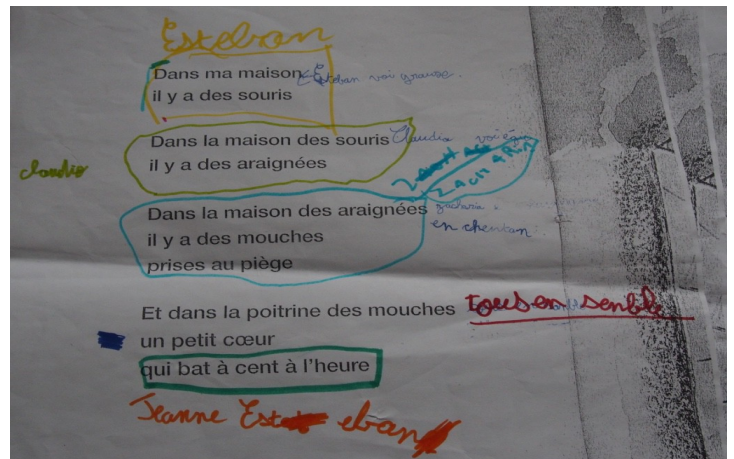 Esteban
Dans ma maison Esteban voi grause.
il y a des souris
Dans la maison des souris Claudia voi
claudio
il y a des araignées
Dans la maison des araignées zacharia
il y a des mouches en chentan
prises au piège
Et dans la poitrine des mouches tous en senble
un petit cœur
qui bat à cent à l'heure
Jeanne Est eban